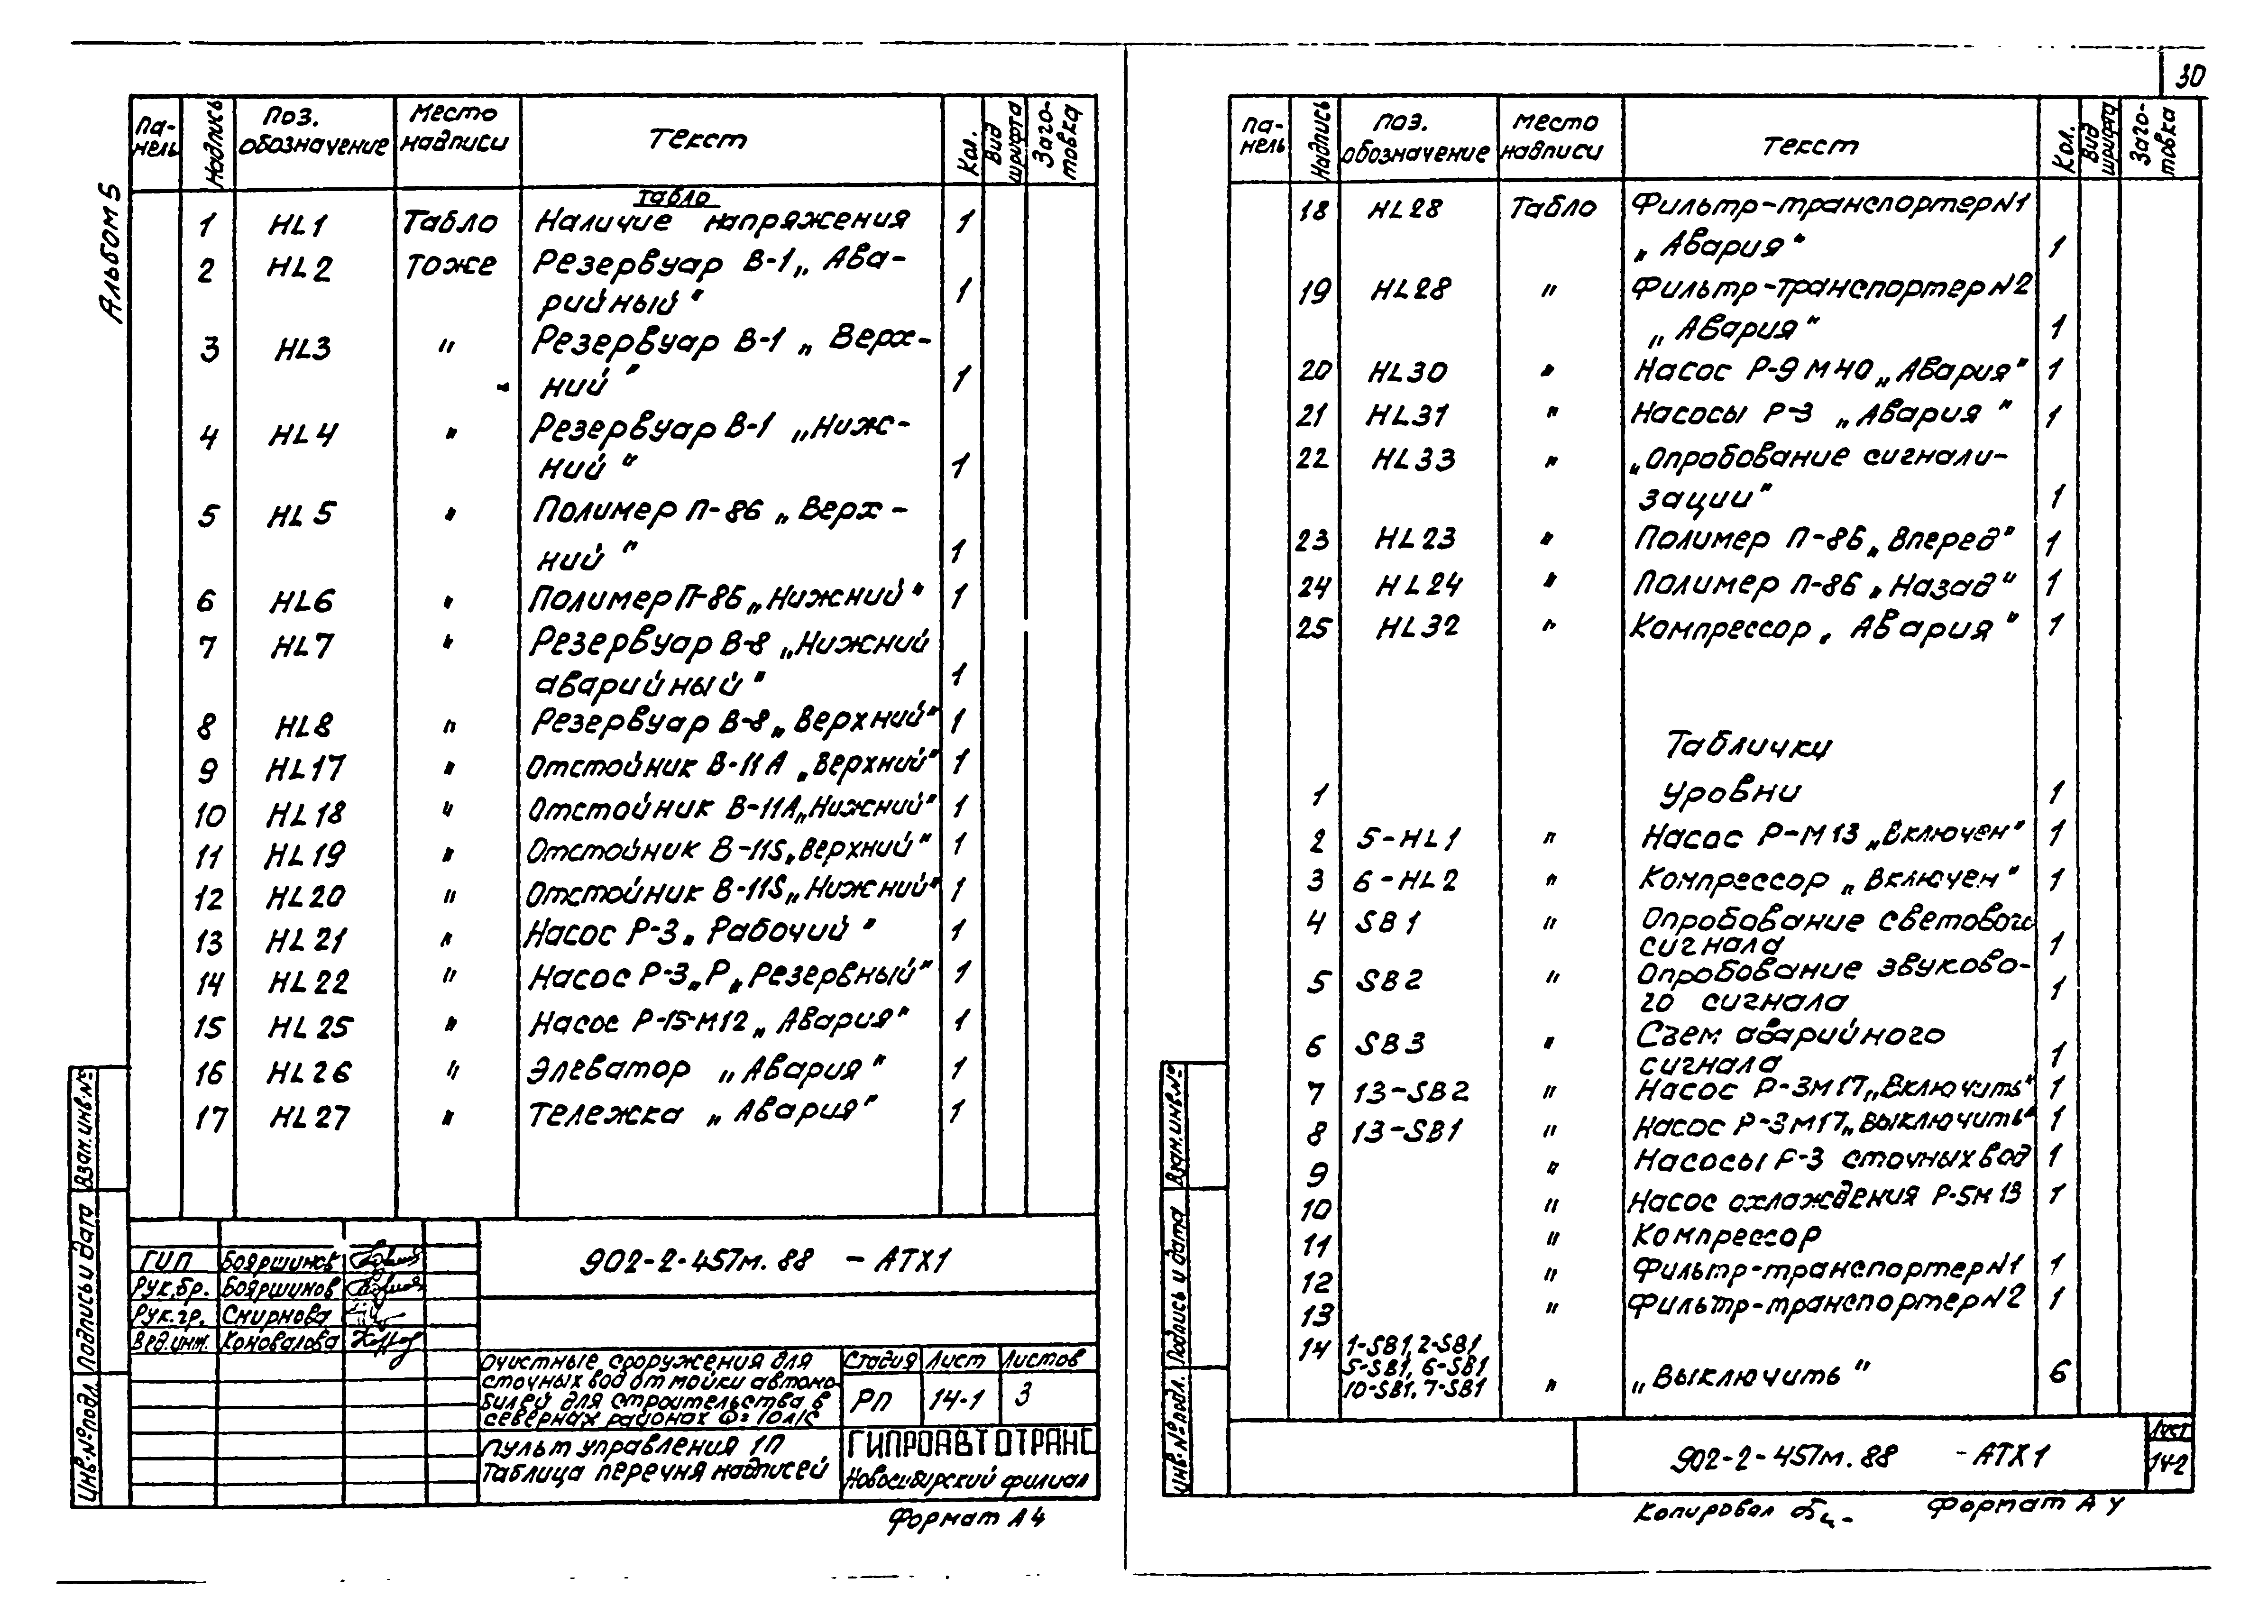 30
Альбом 5
Па-нель Надпись Поз. обозначение Место надписи Текст Кол. Вид шрифта Заго-товка
Табло
1 HL1 Табло Наличие напряжения 1
2 HL2 Тоже Резервуар В-1 „Ава-
рийный" 1
3 HL3 " Резервуар В-1 „Верх-
ний" 1
4 HL4 " Резервуар В-1 „Ниж-
ний" 1
5 HL5 " Полимер П-8Б „Верх-
ний" 1
6 HL6 " Полимер П-8Б „Нижний" 1
7 HL7 " Резервуар В-8 „Нижний
аварийный" 1
8 HL8 " Резервуар В-8 „Верхний" 1
9 HL17 " Отстойник В-11А „Верхний" 1
10 HL18 " Отстойник В-11А „Нижний" 1
11 HL19 " Отстойник В-11S „Верхний" 1
12 HL20 " Отстойник В-11S „Нижний" 1
13 HL21 " Насос Р-3 „Рабочий" 1
14 HL22 " Насос Р-3 „Р„ Резервный" 1
15 HL25 " Насос Р-15-М12 „Авария" 1
16 HL26 " Элеватор „Авария" 1
17 HL27 " Тележка „Авария" 1
ГИП Бояршинов
Рук.бр. Бояршинов
Рук.гр. Смирнова
Вед.инж. Коновалова
902-2-457м.88 - АТХ1
Очистные сооружения для
сточных вод от мойки автомо-
билей для строительства в
северных районах Q=10л/с
Стадия Лист Листов
РП 14-1 3
Пульт управления 1П
Таблица перечня надписей
ГИПРОАВТОТРАНС
Новосибирский филиал
Инв.№подл. Подпись и дата Взам.инв.№
Формат А4
Па-нель Надпись Поз. обозначение Место надписи Текст Кол. Вид шрифта Заго-товка
18 HL28 Табло Фильтр-транспортер N1
„Авария" 1
19 HL28 " Фильтр-транспортер N2
„Авария" 1
20 HL30 " Насос Р-9 М40 „Авария" 1
21 HL31 " Насосы Р-3 „Авария" 1
22 HL33 " „Опробование сигнали-
зации" 1
23 HL23 " Полимер П-8Б „Вперед" 1
24 HL24 " Полимер П-8Б „Назад" 1
25 HL32 " Компрессор „Авария" 1
Таблички
1 Уровни 1
2 5-HL1 " Насос Р-М13 „Включен" 1
3 6-HL2 " Компрессор „Включен" 1
4 SB1 " Опробование светового
сигнала 1
5 SB2 " Опробование звуково-
го сигнала 1
6 SB3 " Съем аварийного
сигнала 1
7 13-SB2 " Насос Р-3М17 „Включить" 1
8 13-SB1 " Насос Р-3М17 „Выключить" 1
9 " Насосы Р-3 сточных вод 1
10 " Насос охлаждения Р-5М13 1
11 " Компрессор
12 " Фильтр-транспортер N1 1
13 " Фильтр-транспортер N2 1
14 1-SB1, 2-SB1
5-SB1, 6-SB1
10-SB1, 7-SB1 " „Выключить" 6
902-2-457м.88 - АТХ1
Лист
14-2
Инв.№подл. Подпись и дата Взам.инв.№
Копировал Формат А4